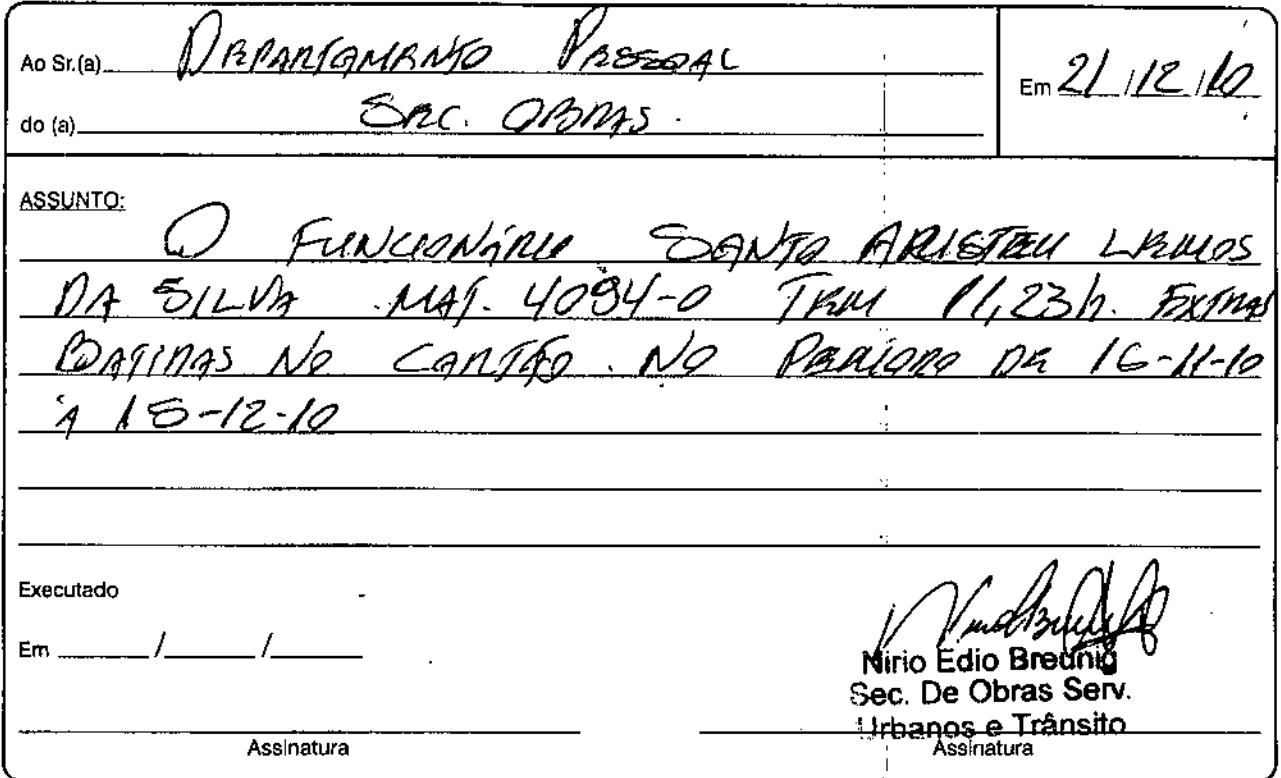 Ao Sr.(a) DEPARTAMENTO PESSOAL
Em 21/12/10
do (a) SEC. OBRAS.
ASSUNTO:
O FUNCIONÁRIO SANTO ARISTEU LEMOS
DA SILVA MAT. 4094-0 TEM 11,23h. EXTRAS
BATIDAS NO CARTÃO. NO PERIODO DE 16-11-10
À 15-12-10
Executado
Em ____/____/____
Nirio Edio Breunig
Sec. De Obras Serv.
Urbanos e Trânsito
Assinatura
Assinatura